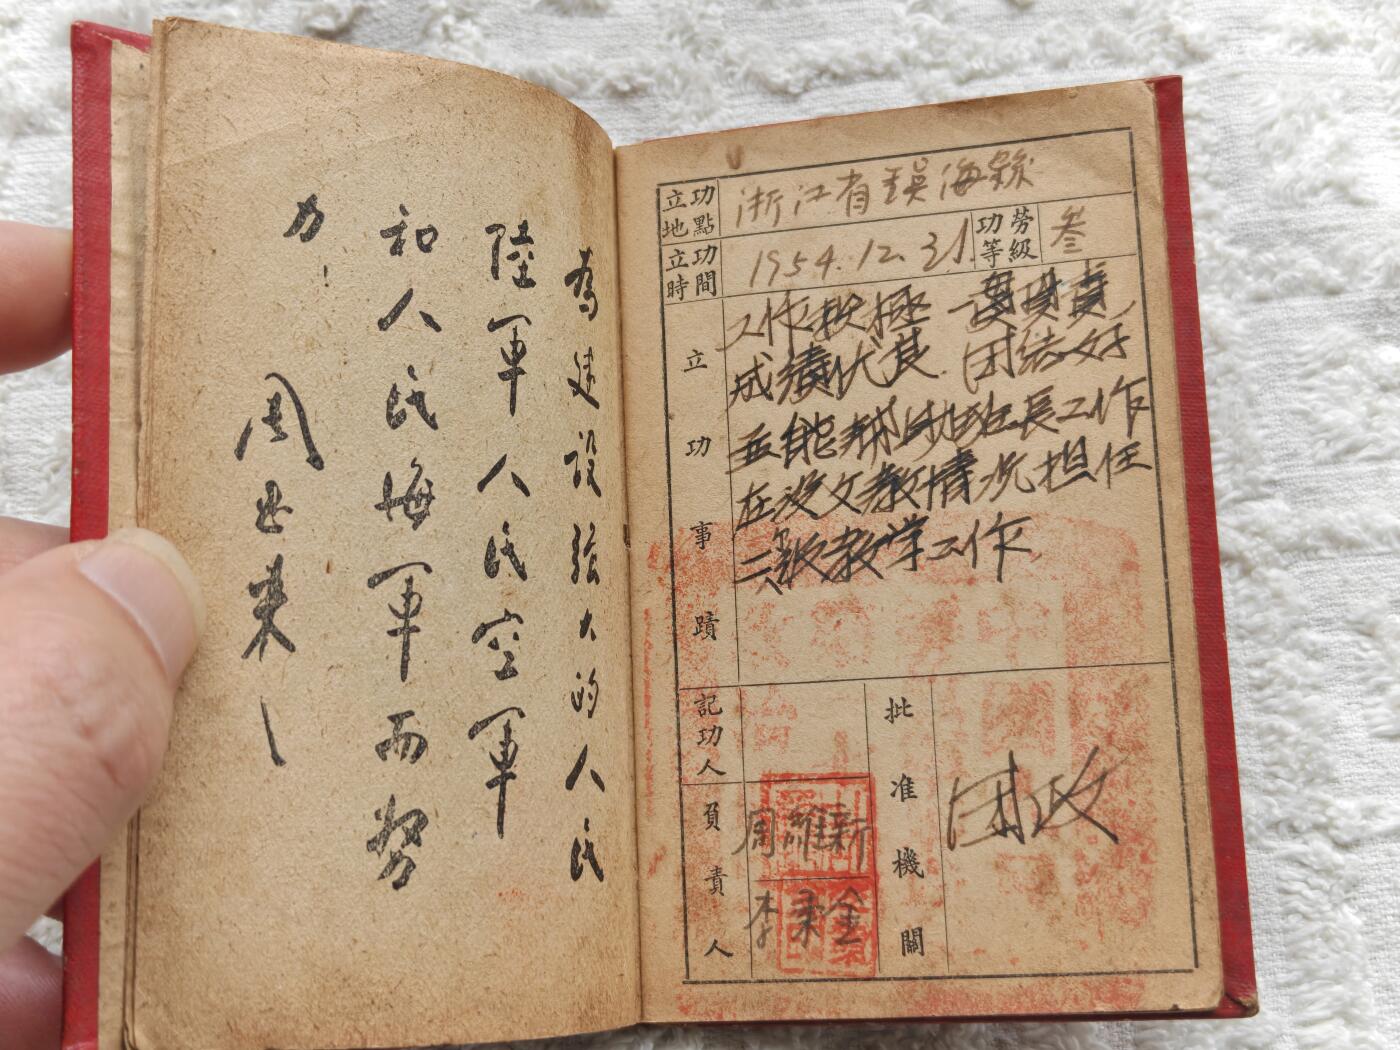 為建設強大的人民
陸軍人民空軍
和人民海軍而努
力!
周恩来
立功地點
浙江省鎮海縣
立功時間
1954.12.31.
功勞等級
叁
立功事蹟
工作积極 負責
成績优甚 团结好
並能帮助班長工作
在没文教情况担任
二級教学工作
記功人
負責人
周維新
李柔金
批准機關
团政